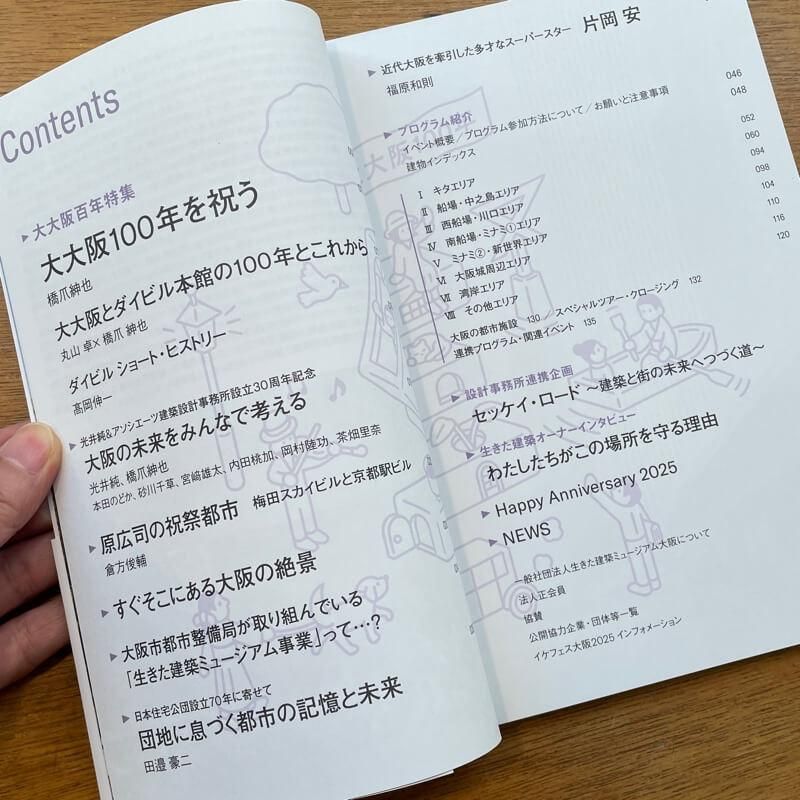 Contents
▶大大阪百年特集
大大阪100年を祝う
橋爪紳也
大大阪とダイビル本館の100年とこれから
丸山 卓×橋爪 紳也
ダイビル ショート・ヒストリー
髙岡伸一
▶光井純&アソシエーツ建築設計事務所設立30周年記念
大阪の未来をみんなで考える
光井純、橋爪紳也
本田のどか、砂川千草、宮﨑雄太、内田桃加、岡村陸功、茶畑里奈
▶原広司の祝祭都市 梅田スカイビルと京都駅ビル
倉方俊輔
▶すぐそこにある大阪の絶景
▶大阪市都市整備局が取り組んでいる
「生きた建築ミュージアム事業」って…?
▶日本住宅公団設立70年に寄せて
団地に息づく都市の記憶と未来
田邉 豪二
▶近代大阪を牽引した多才なスーパースター 片岡 安
福原和則
▶プログラム紹介
イベント概要/プログラム参加方法について/お願いと注意事項 046
建物インデックス 048
Ⅰ キタエリア 052
Ⅱ 船場・中之島エリア 060
Ⅲ 西船場・川口エリア 094
Ⅳ 南船場・ミナミ①エリア 098
Ⅴ ミナミ②・新世界エリア 104
Ⅵ 大阪城周辺エリア 110
Ⅶ 湾岸エリア 116
Ⅷ その他エリア 120
大阪の都市施設 130 / スペシャルツアー・クロージング 132
連携プログラム・関連イベント 135
▶設計事務所連携企画
セッケイ・ロード 〜建築と街の未来へつづく道〜
▶生きた建築オーナーインタビュー
わたしたちがこの場所を守る理由
▶Happy Anniversary 2025
▶NEWS
一般社団法人生きた建築ミュージアム大阪について
法人正会員
協賛
公開協力企業・団体等一覧
イケフェス大阪2025 インフォメーション
大大阪100年